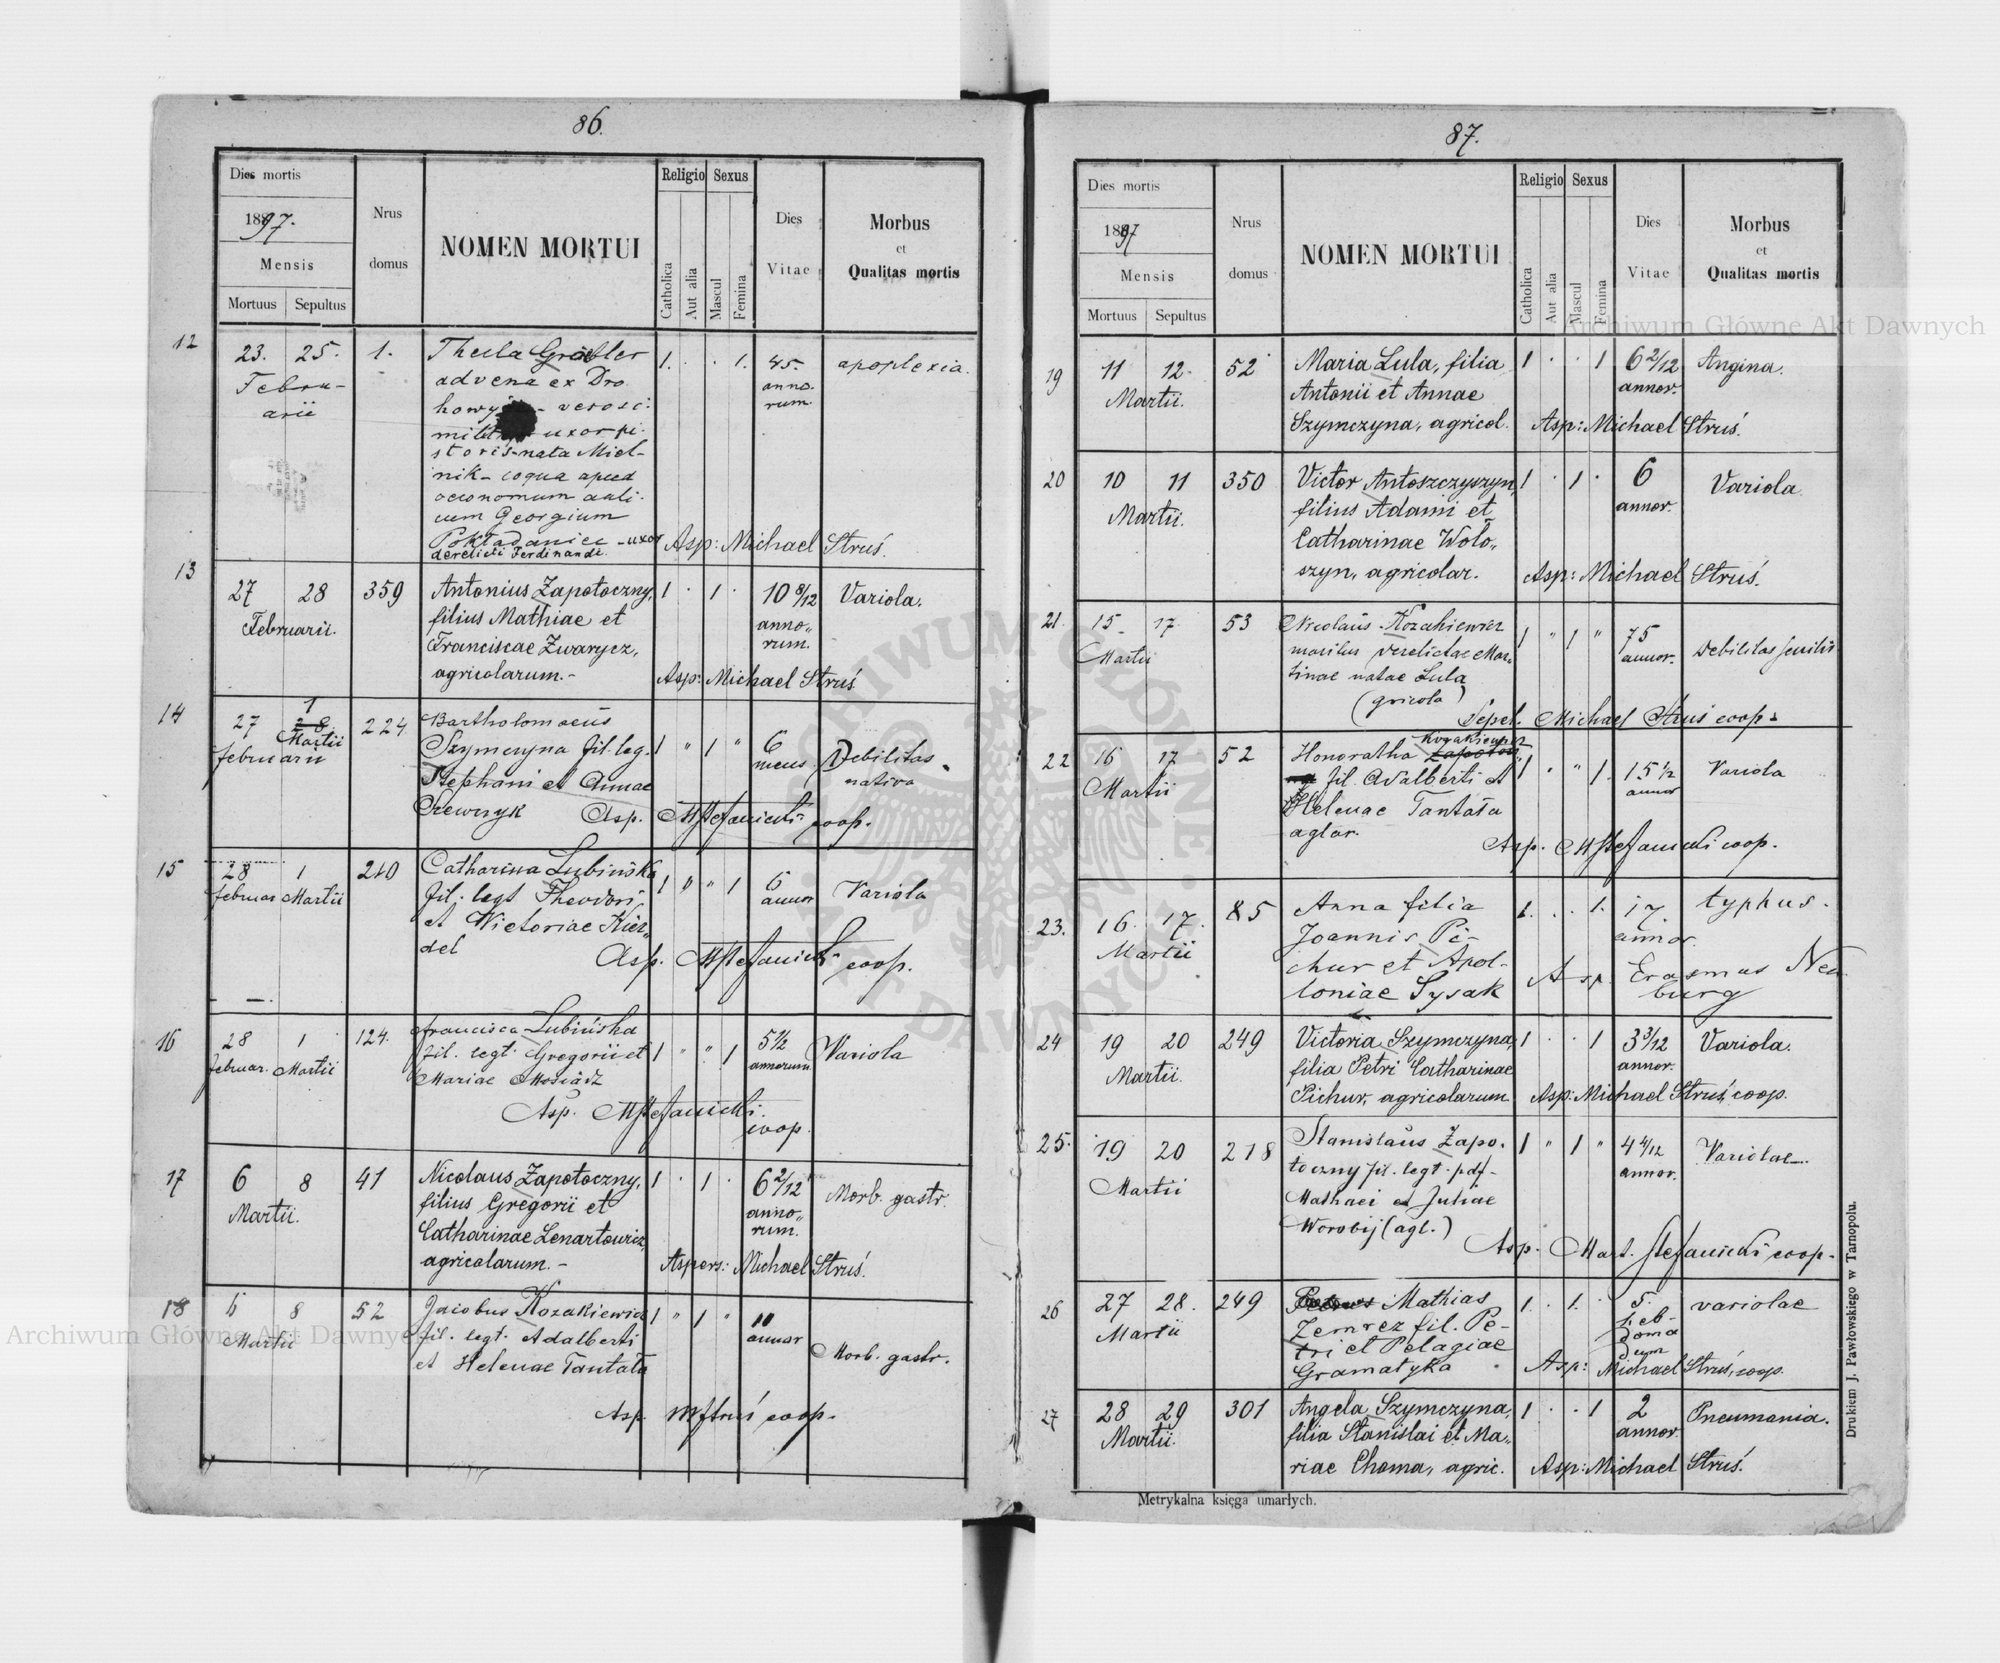 86.
Dies mortis
1897.
Mensis
Mortuus
Sepultus
Nrus
domus
NOMEN MORTUI
Religio
Sexus
Catholica
Aut alia
Mascul
Femina
Dies
Vitae
Morbus
et
Qualitas mortis
12
23. 25. 1. Thecla 1. . . 1. 45. apoplexia.
Febru-
arii
anno-
rum.
advena ex Dro
uxor pi-
storis nata Miel-
nik - coqua apud
oeconomum auli-
cum Georgium
- uxor
derelicti Ferdinandi.
Asp: Michael Struś.
13
27 28 359 Antonius Zapotoczny, 1 . 1 . 10 8/12 Variola.
Februarii.
filius Mathiae et
anno„
rum.
Franciscae Zwarycz,
agricolarum.-
Asp: Michael Struś
14
27 1 224 Bartholomaeus
februarii Martii
Szymczyna fil. leg. 1 " 1 " 6 Debilitas
mens. nativa
Stephani et Annae
Szewczyk Asp. MStefanicki coop.
15
28 1 240 Catharina Lubińska
februar Martii
fil. legt Theodori 1 " " 1 6 Variola
annor
et Victoriae Kier„
del
Asp. MStefanicki coop.
16
28 1 124. Francisca Lubińska 5 1/2
februar. Martii
fil. legt. Gregorii et 1 " " 1 annorum Variola
Mariae Mosiądz
Asp. MStefanicki
coop.
17
6 8 41 Nicolaus Zapotoczny, 1 . 1 . 6 2/12 Morb. gastr.
Martii.
filius Gregorii et
anno„
rum.
Catharinae Lenartowicz,
agricolarum.-
Aspers: Michael Struś.
18
6 8 52 Jacobus Kozakiewicz 1 " 1 " 10
Martii
annor
fil. legt. Adalberti
Morb. gastr.
et Helenae Tantała
Asp MStruś coop.
87.
Dies mortis
1897
Mensis
Mortuus
Sepultus
Nrus
domus
NOMEN MORTUI
Religio
Sexus
Catholica
Aut alia
Mascul
Femina
Dies
Vitae
Morbus
et
Qualitas mortis
19
11 12 52 Maria Lula, filia 1 . . 1 6 2/12 Angina.
Martii.
annor.
Antonii et Annae
Szymczyna, agricol. Asp: Michael Struś.
20
10 11 350 Victor Antoszczyszyn, 1 . 1 . 6 Variola.
Martii.
annor.
filius Adami et
Catharinae Woło„
szyn, agricolar. Asp: Michael Struś.
21
15 17 53 Nicolaus Kozakiewicz 1 " 1 " 75 Debilitas senilis
Martii
annor.
maritus derelictae Mar„
tinae natae Lula
(gricola)
Sepel. Michael Struś coop.
22
16 17 52 Honoratha Kozakiewicz
Martii
fil. Adalberti et 1 " " 1. 15 1/2 Variola
annor
Helenae Tantała
aglar.
Asp. MStefanicki coop.
23.
16. 17. 85 Anna filia 1. . . 1. 17. typhus.
Martii
annor.
Joannis Pi-
chur et Apol-
loniae Sysak Asp Erasmus Neu
burg
24
19 20 249 Victoria Szymczyna, 1 . . 1 3 3/12 Variola.
Martii.
annor.
filia Petri Catharinae
Pichur, agricolarum Asp: Michael Struś, coop.
25.
19 20 218 Stanislaus Zapo. 1 " 1 " 4 4/12 Variolae
Martii
annor.
toczny fil. legt. pdf-
Mathaei et Juliae
Worobij (agl.)
Asp. Mart. Stefanicki coop.
26
27 28. 249 Mathias 1. . 1. . 5. variolae
Martii
heb-
doma
dum
fil. Pe-
tri et Pelagiae
Gramatyka Asp: Michael Struś, coop.
27
28 29 301 Angela Szymczyna, 1 . . 1 2 Pneumonia.
Martii.
annor.
filia Stanislai et Ma„
riae Choma, agric. Asp: Michael Struś.
Metrykalna księga umarłych.
Drukiem J. Pawłowskiego w Tarnopolu.
Archiwum Główne Akt Dawnych
Archiwum Główne Akt Dawnych
ARCHIWUM GŁÓWNE AKT DAWNYCH